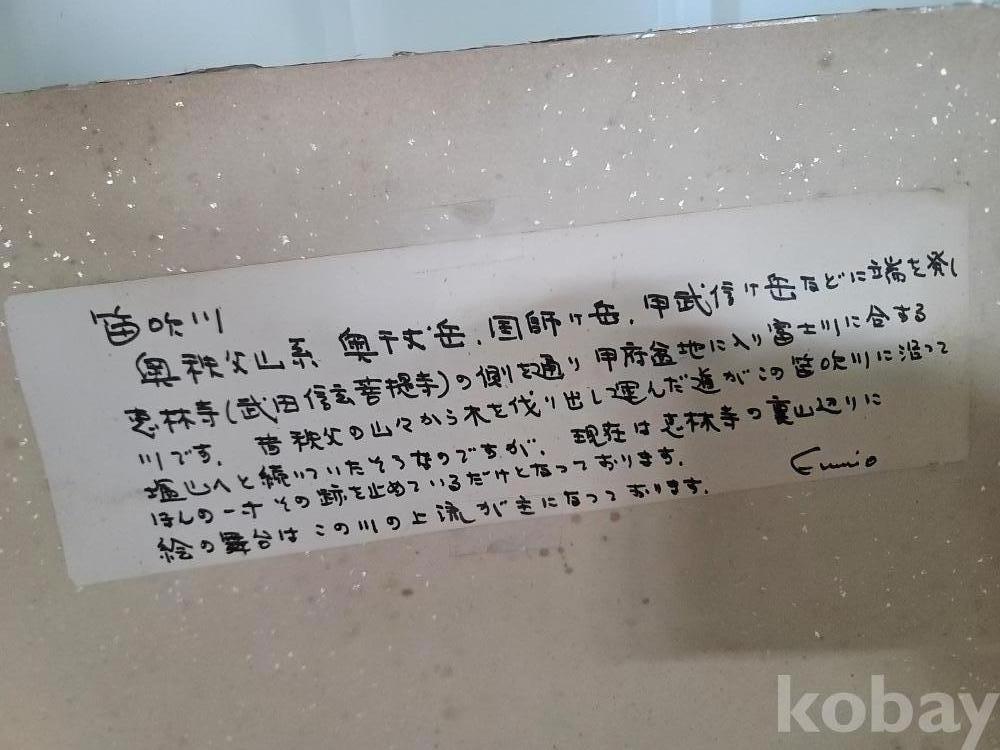 笛吹川
奥秩父山系、奥千丈岳、国師ヶ岳、甲武信ヶ岳などに端を発し
恵林寺(武田信玄菩提寺)の側を通り甲府盆地に入り富士川に合する
川です。昔秩父の山々から木を伐り出し運んだ道がこの笛吹川に沿って
塩山へと続いていたそうなのですが、現在は恵林寺の裏山辺りに
ほんの一寸その跡を止めているだけとなっております。
絵の舞台はこの川の上流が主になっております。
Fumio
kobay